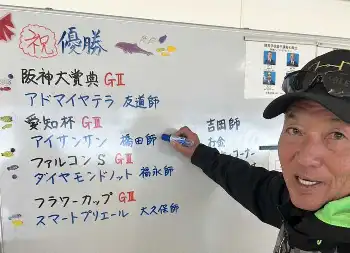 祝 優勝
阪神大賞典 GⅡ
アドマイヤテラ 友道師
愛知杯 GⅡ
アイサンサン 橋田師
ファルコンS GⅡ
ダイヤモンドノット 福永師
フラワーカップ GⅡ
スマートプリエール 大久保師
吉田師
お金
コーナー